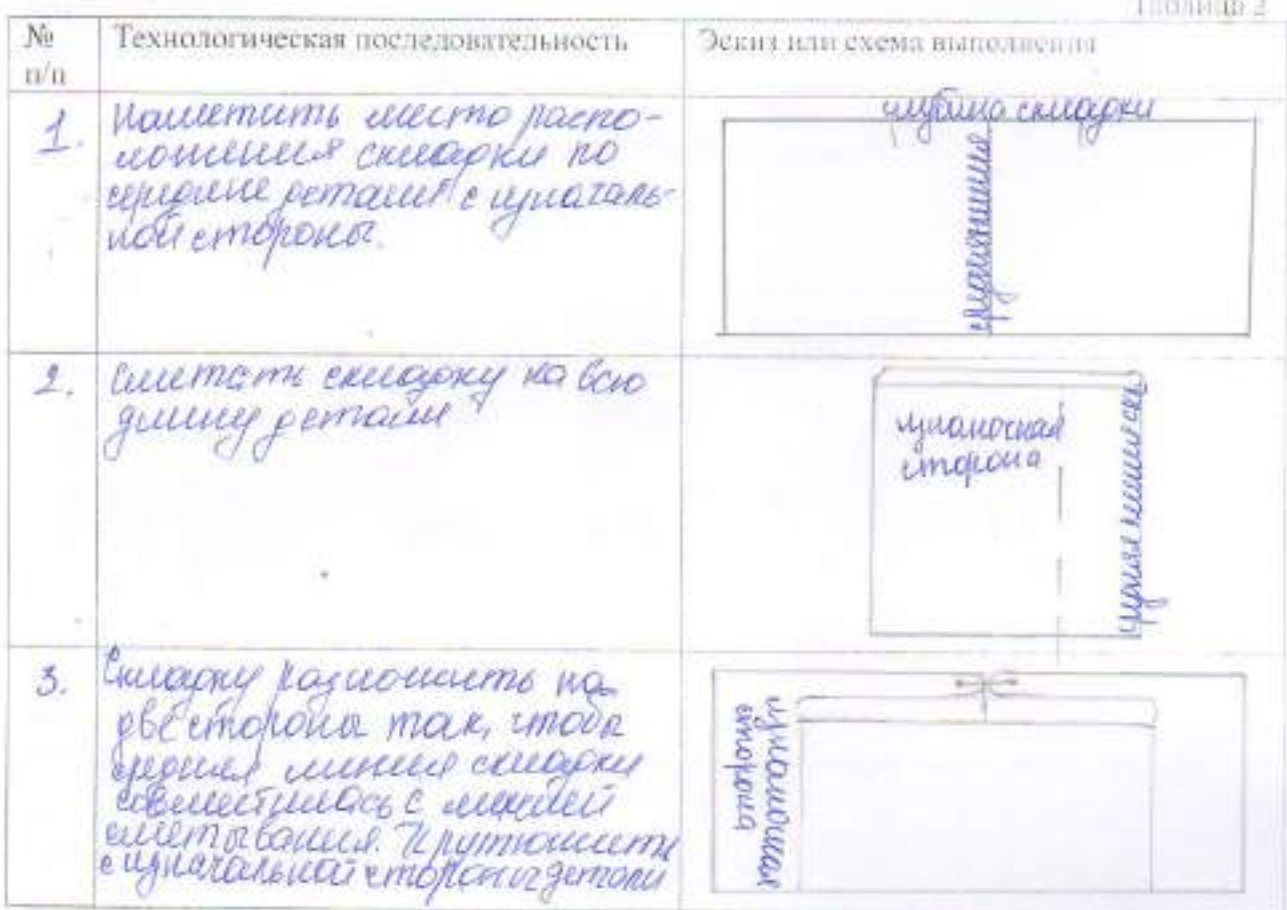 Таблица 2
№ п/п
Технологическая последовательность
Эскиз или схема выполнения
1.
Наметить место распо-
ложения складки по
середине детали с изначаль-
ной стороны.
глубина складки
средняя линия
2.
Сметать складку на всю
длину детали
изнаночная
сторона
средняя линия ски
3.
Складку разложить на
две стороны так, чтобы
средняя линия складки
совместилась с линией
сметывания. И приутюжить
с изначальной стороны детали
изнаночная
сторона